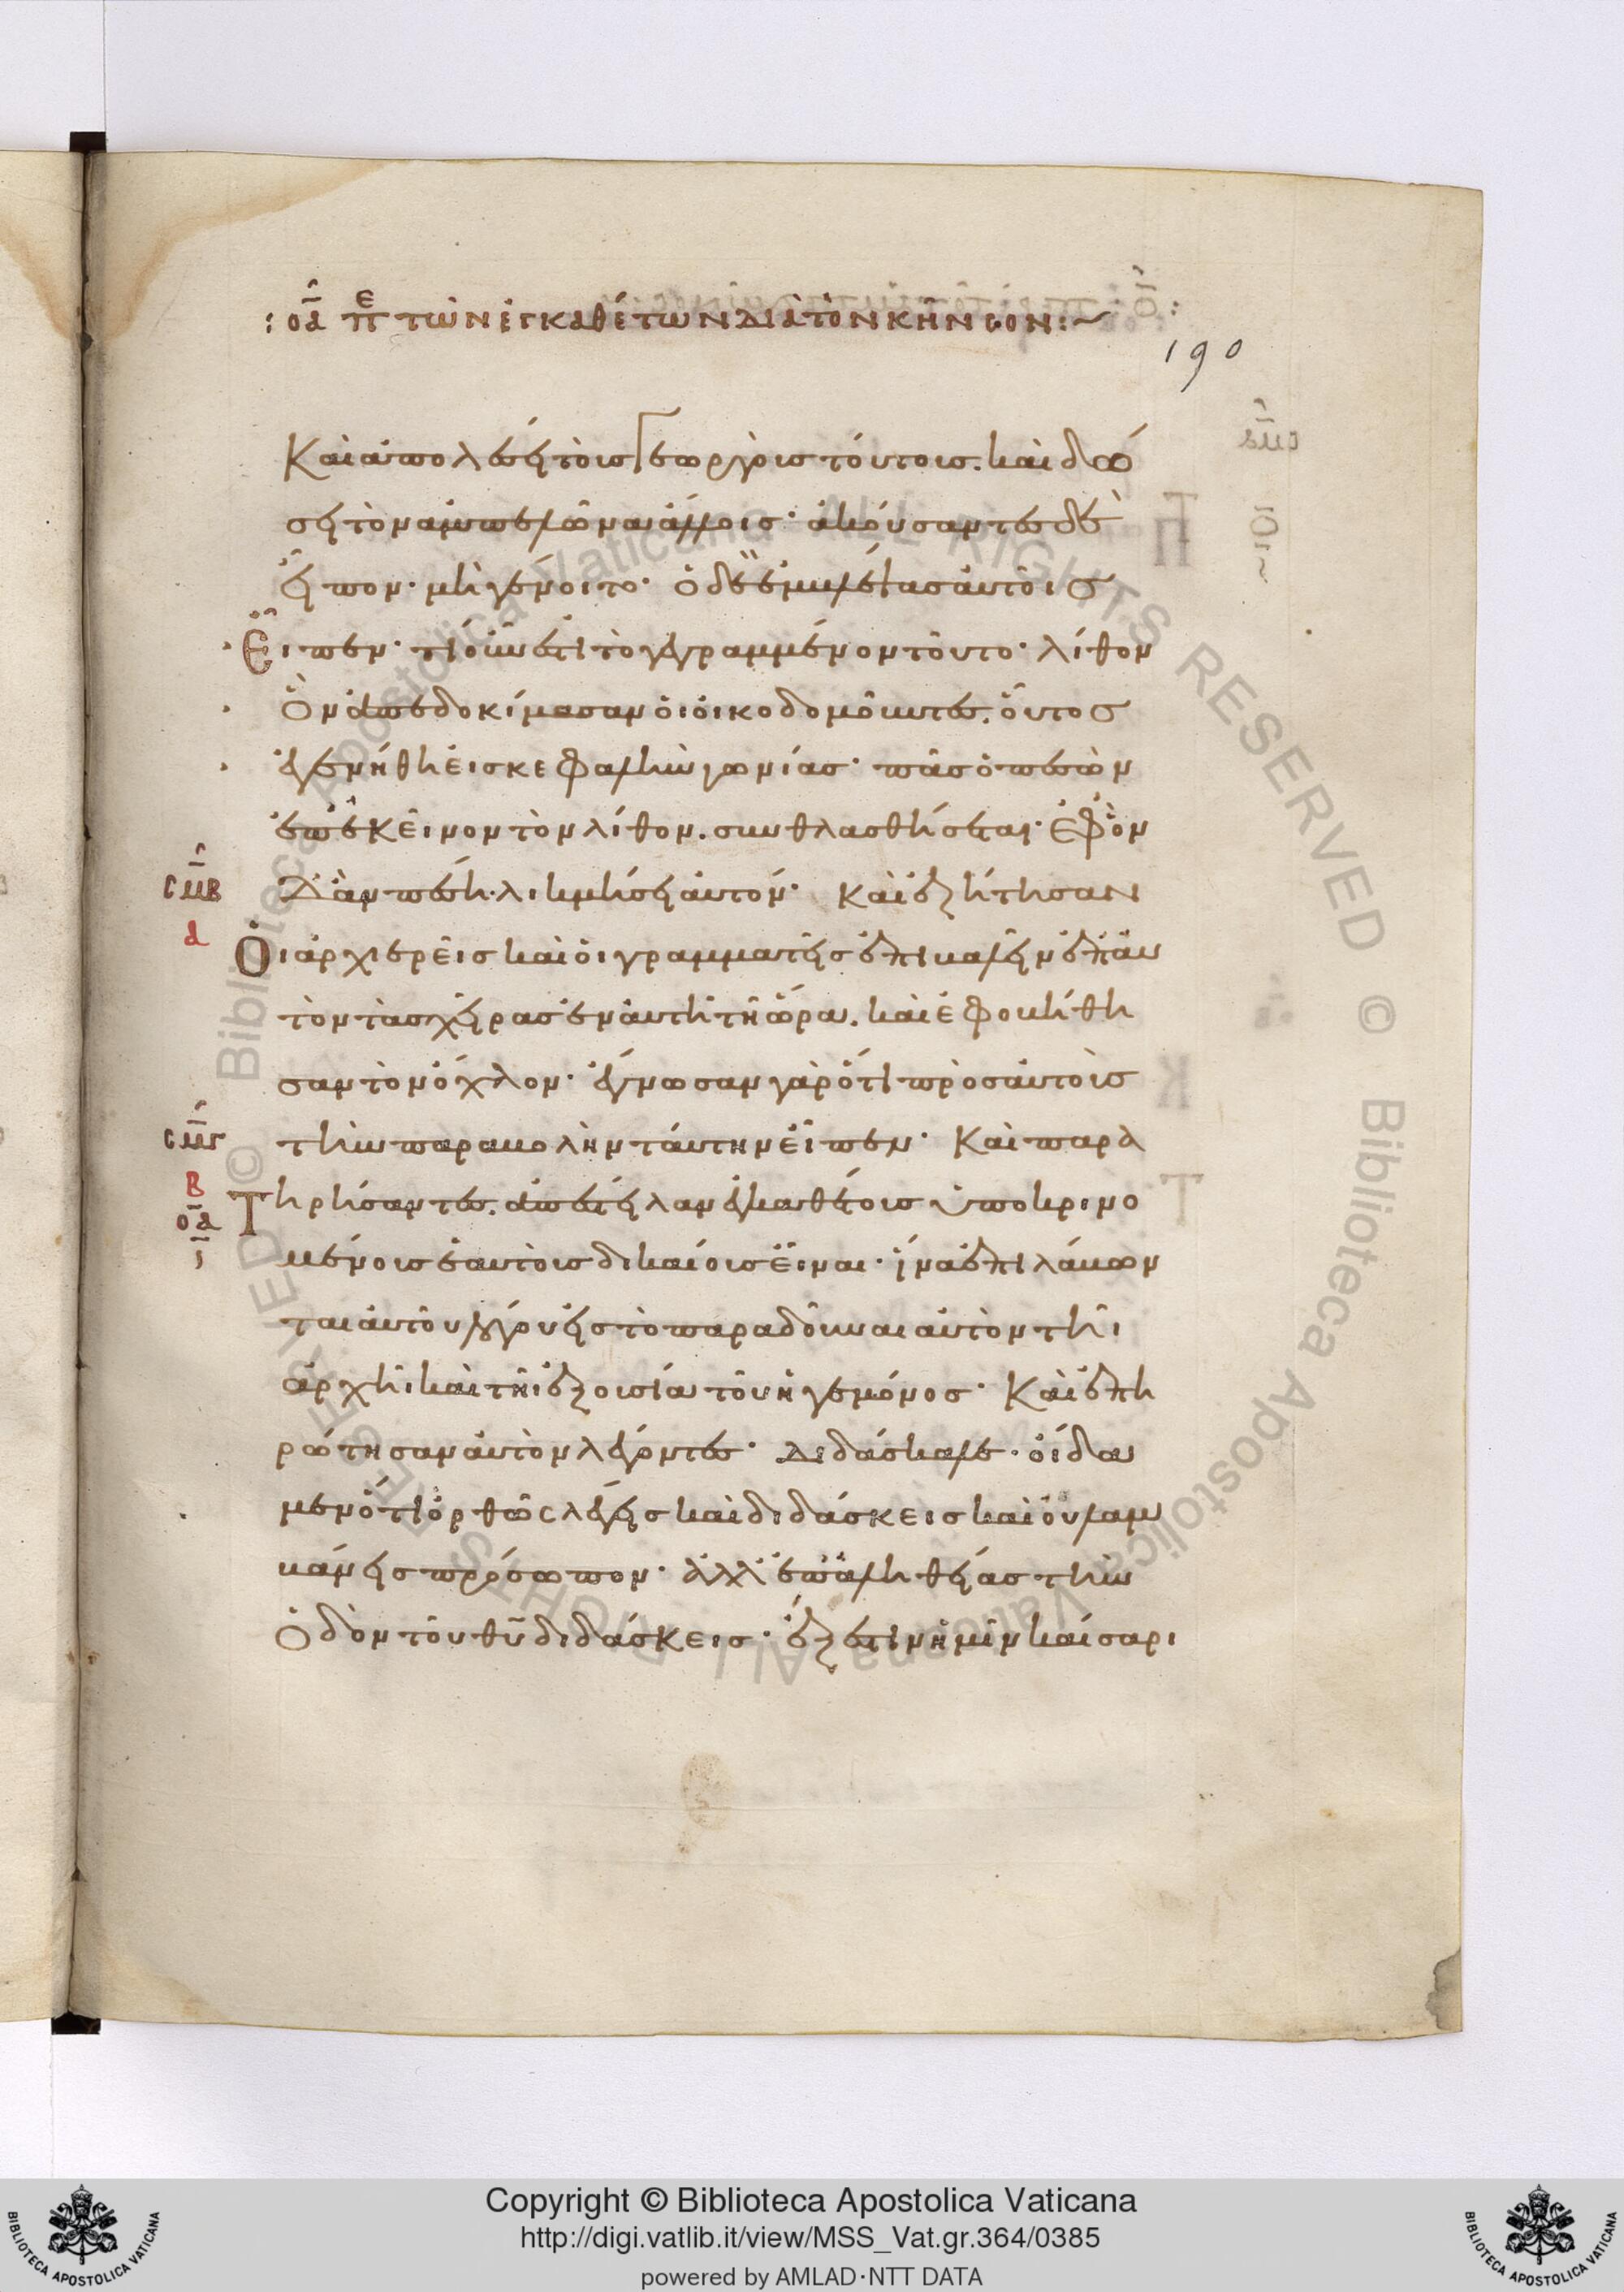 : οα πε των εγκαθέτων διὰ τὸν κῆνσον :~
190
Καὶ ἀπολέσει τοὺς γεωργοὺς τούτους. καὶ δώ
σει τὸν ἀμπελῶνα ἄλλοις· ἀκούσαντες δὲ
εἶπον· μὴ γένοιτο· ὁ δὲ ἐμβλέψας αὐτοῖς
Εἶπεν· τί οὖν ἐστὶ τὸ γεγραμμένον τοῦτο· λίθον
Ὃν ἀπεδοκίμασαν οἱ οἰκοδομοῦντες. οὗτος
ἐγενήθη εἰς κεφαλὴν γωνίας· πᾶς ὁ πεσὼν
ἐπ' ἐκεῖνον τὸν λίθον. συνθλασθήσεται· ἐφ' ὃν
Δ' ἂν πέσῃ. λικμήσει αὐτόν· Καὶ ἐζήτησαν
Οἱ ἀρχιερεῖς καὶ οἱ γραμματεῖς ἐπιβαλεῖν ἐπ' αὐ
τὸν τὰς χεῖρας ἐν αὐτῇ τῇ ὥρα. καὶ ἐφοβήθη
σαν τὸν ὄχλον· ἔγνωσαν γὰρ ὅτι πρὸς αὐτοὺς
τὴν παραβολὴν ταύτην εἶπεν· Καὶ παρα
Τηρήσαντες. ἀπέστειλαν ἐγκαθέτους ὑποκρινο
μένους ἑαυτοὺς δικαίους εἶναι· ἵνα ἐπιλάβων
ται αὐτοῦ λόγου εἰς τὸ παραδοῦναι αὐτὸν τῆι
ἀρχῆι καὶ τῆι ἐξουσία τοῦ ἡγεμόνος· Καὶ ἐπη
ρώτησαν αὐτὸν λέγοντες· Διδάσκαλε· οἴδα
μεν ὅτι ὀρθῶς λέγεις καὶ διδάσκεις καὶ οὐ λαμ
βάνεις πρόσωπον· ἀλλ' ἐπ' ἀληθείας τὴν
Ὁδὸν τοῦ θῦ διδάσκεις· ἔξεστιν ἡμῖν καίσαρι
σμβ
α
σμγ
β
οα
Copyright © Biblioteca Apostolica Vaticana
http://digi.vatlib.it/view/MSS_Vat.gr.364/0385
powered by AMLAD·NTT DATA
BIBLIOTECA APOSTOLICA VATICANA
BIBLIOTECA APOSTOLICA VATICANA